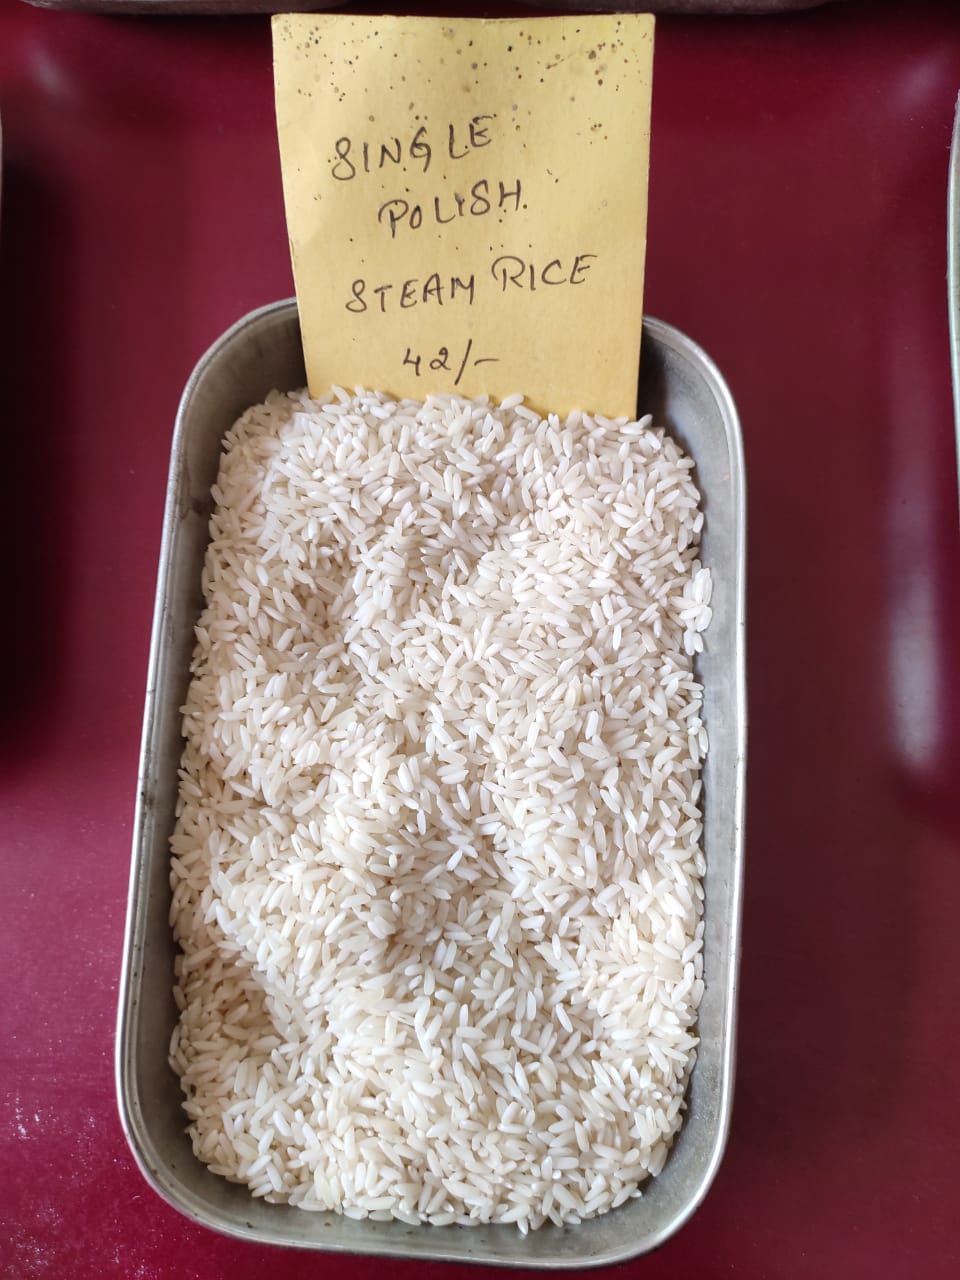 SINGLE
POLISH.
STEAM RICE
42/-